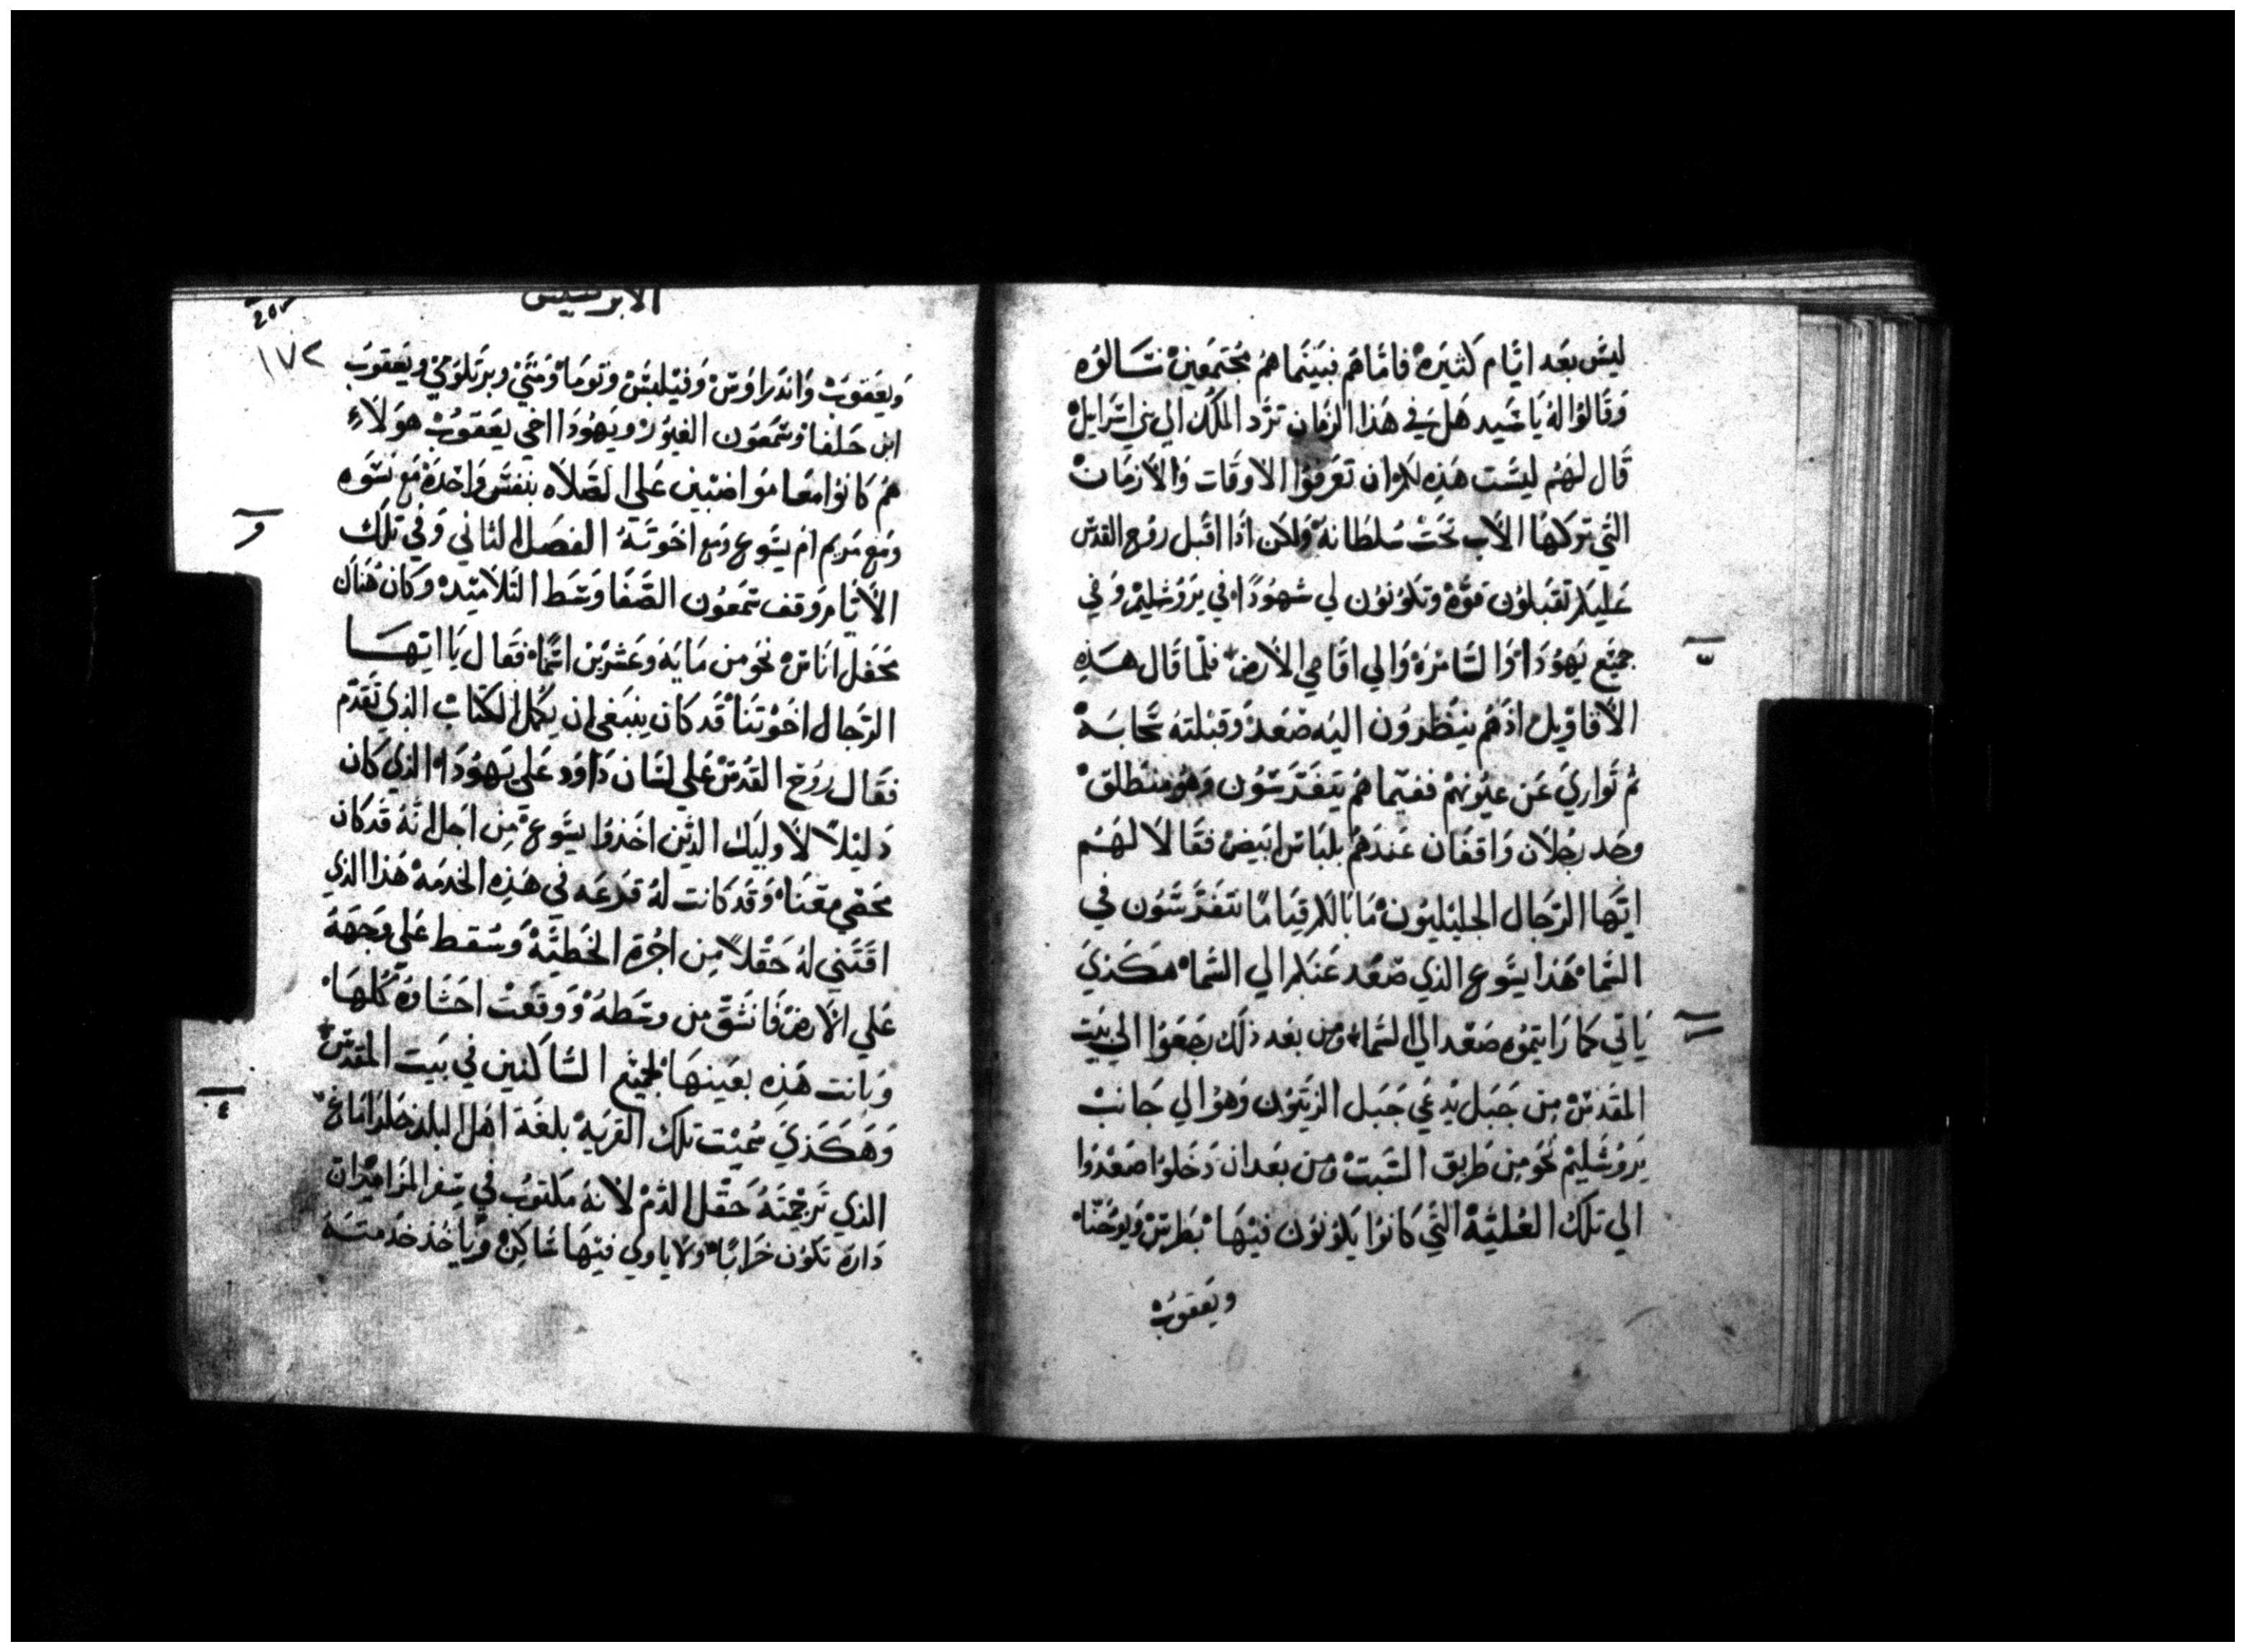 ليسَ بَعد ايّام كثيرَه فامّاهُم فبَينَماهُم مُجتمَعين سَالوُه
وَقالوُا لهُ يَا سَيد هَل في هَذا الزمَان تردّ الملك الي بني اسَرايل
قَال لهَم ليسَت هَذِه لكم ان تعَرفوُا الاوقات وَالأزمَان
التي تركهَا الأب تحَت سُلطَانهَ وَلكن اذَا اقبَل روُح القدس
عَليكم تقبَلوُن قوَّه وتكوُنوُن لي شهوُدًا في يَروُشليمْ وَفي
جميَع يَهوُدَا وَالسَامرَه وَالي اقَاصي الأرض فلمّا قَال هَذِه
الأقاوَيل اذهمُ ينظروُن اليَه صَعَد وَقبلته سَحابَة
ثم تَواري عَن عيوُنهمْ ففيَماهُم يتَفَرّسَوُن وَهوُ منطلق
وجَد رجُلان وَاقفَان عَندَهمُ بلبَاس ابيَض فقَالا لهَم
ايّها الرّجَال الجليليوُن مَا بَالكم قيَامًا تتفَرّسَوُن في
السَما هَذا يسَوع الذي صَعَد عَنكم الي السَما هكَذي
يَاتي كمَا رَايتموُه صَعَد الي السَماء ومن بعَد ذلَك رجَعوُا الي بَيت
المقدسْ من جَبل يَدعَي جَبل الزيتوُن وَهوُ الي جَانب
يَروُشَليمْ نحَو من طَريق السَبت ومن بعَد ان دَخَلوُا صَعَدوُا
الي تلك العُليَّة التَي كَانوُا يكوُنوُن فيهَا بَطرسْ وَيوُحَنا
ويَعقوُبْ
الابركسيس
205
١٧٢
وَيعَقوُبْ وَاندَراوُسْ وَفيَلبسْ وَتوُمَا وَمتَي وبرَتلوُمي ويَعقوُبَ
ابن حَلفا وشمَعوُن الغيوُرْ ويَهوُدَا اخي يعَقوُبْ هوَلاَءِ
هُم كَانوُا معًا موُاضبين عَلي الصَلاه بنفس وَاحَدَة مَع نسَوه
ومَع مَريم ام يسَوع ومَع اخوَتَهُ الفصَل الثاني وَفي تلَك
الأيَام وَقف شمَعوُن الصَفَا وَسَط التَلاميَذ وَكانَ هُنَاك
محَفل انَاسْ نحَو من مَايَه وَعَشرَين اسَمًا فقَال يَا ايّهَا
الرّجَال اخَوتنَا قَد كَان ينبَغي ان يكمل الكتَاب الذي تَقدّم
فقَال روُح القدُسْ عَلي لسَان دَاوَد عَلي يَهوُدَا الذي كَان
دَليلاً لأوليَك الذين اخَذوُا يسَوع من اجَل انَهُ قَد كَان
محَصي معَنَا وَقَد كَانت لهُ قرعَه في هَذِه الخدمَة هَذا الذي
اقتَني لهُ حَقلاً من اجُرة الخَطيَّة وَسَقط عَلي وَجهَهُ
عَلي الأرض فَانشَق من وسَطهُ وَوقعَت احَشَاوهُ كُلهَا
وَبَانت هَذِه بعَينهَا لجميَع السَاكنين في بَيت المقدسْ
وَهَكَذي سُميَت تلك القَريَة بلغَة اهَل البلد حَقل دَامَاخ
الذي تَرجمَتهُ حَقل الدَم لأنهُ مكتوُب في سِفر المَزاميَر ان
دَارهَ تكوُن خرَابًا ولا ياوي فيَهَا سَاكن وَيَاخذ خدمتَهُ